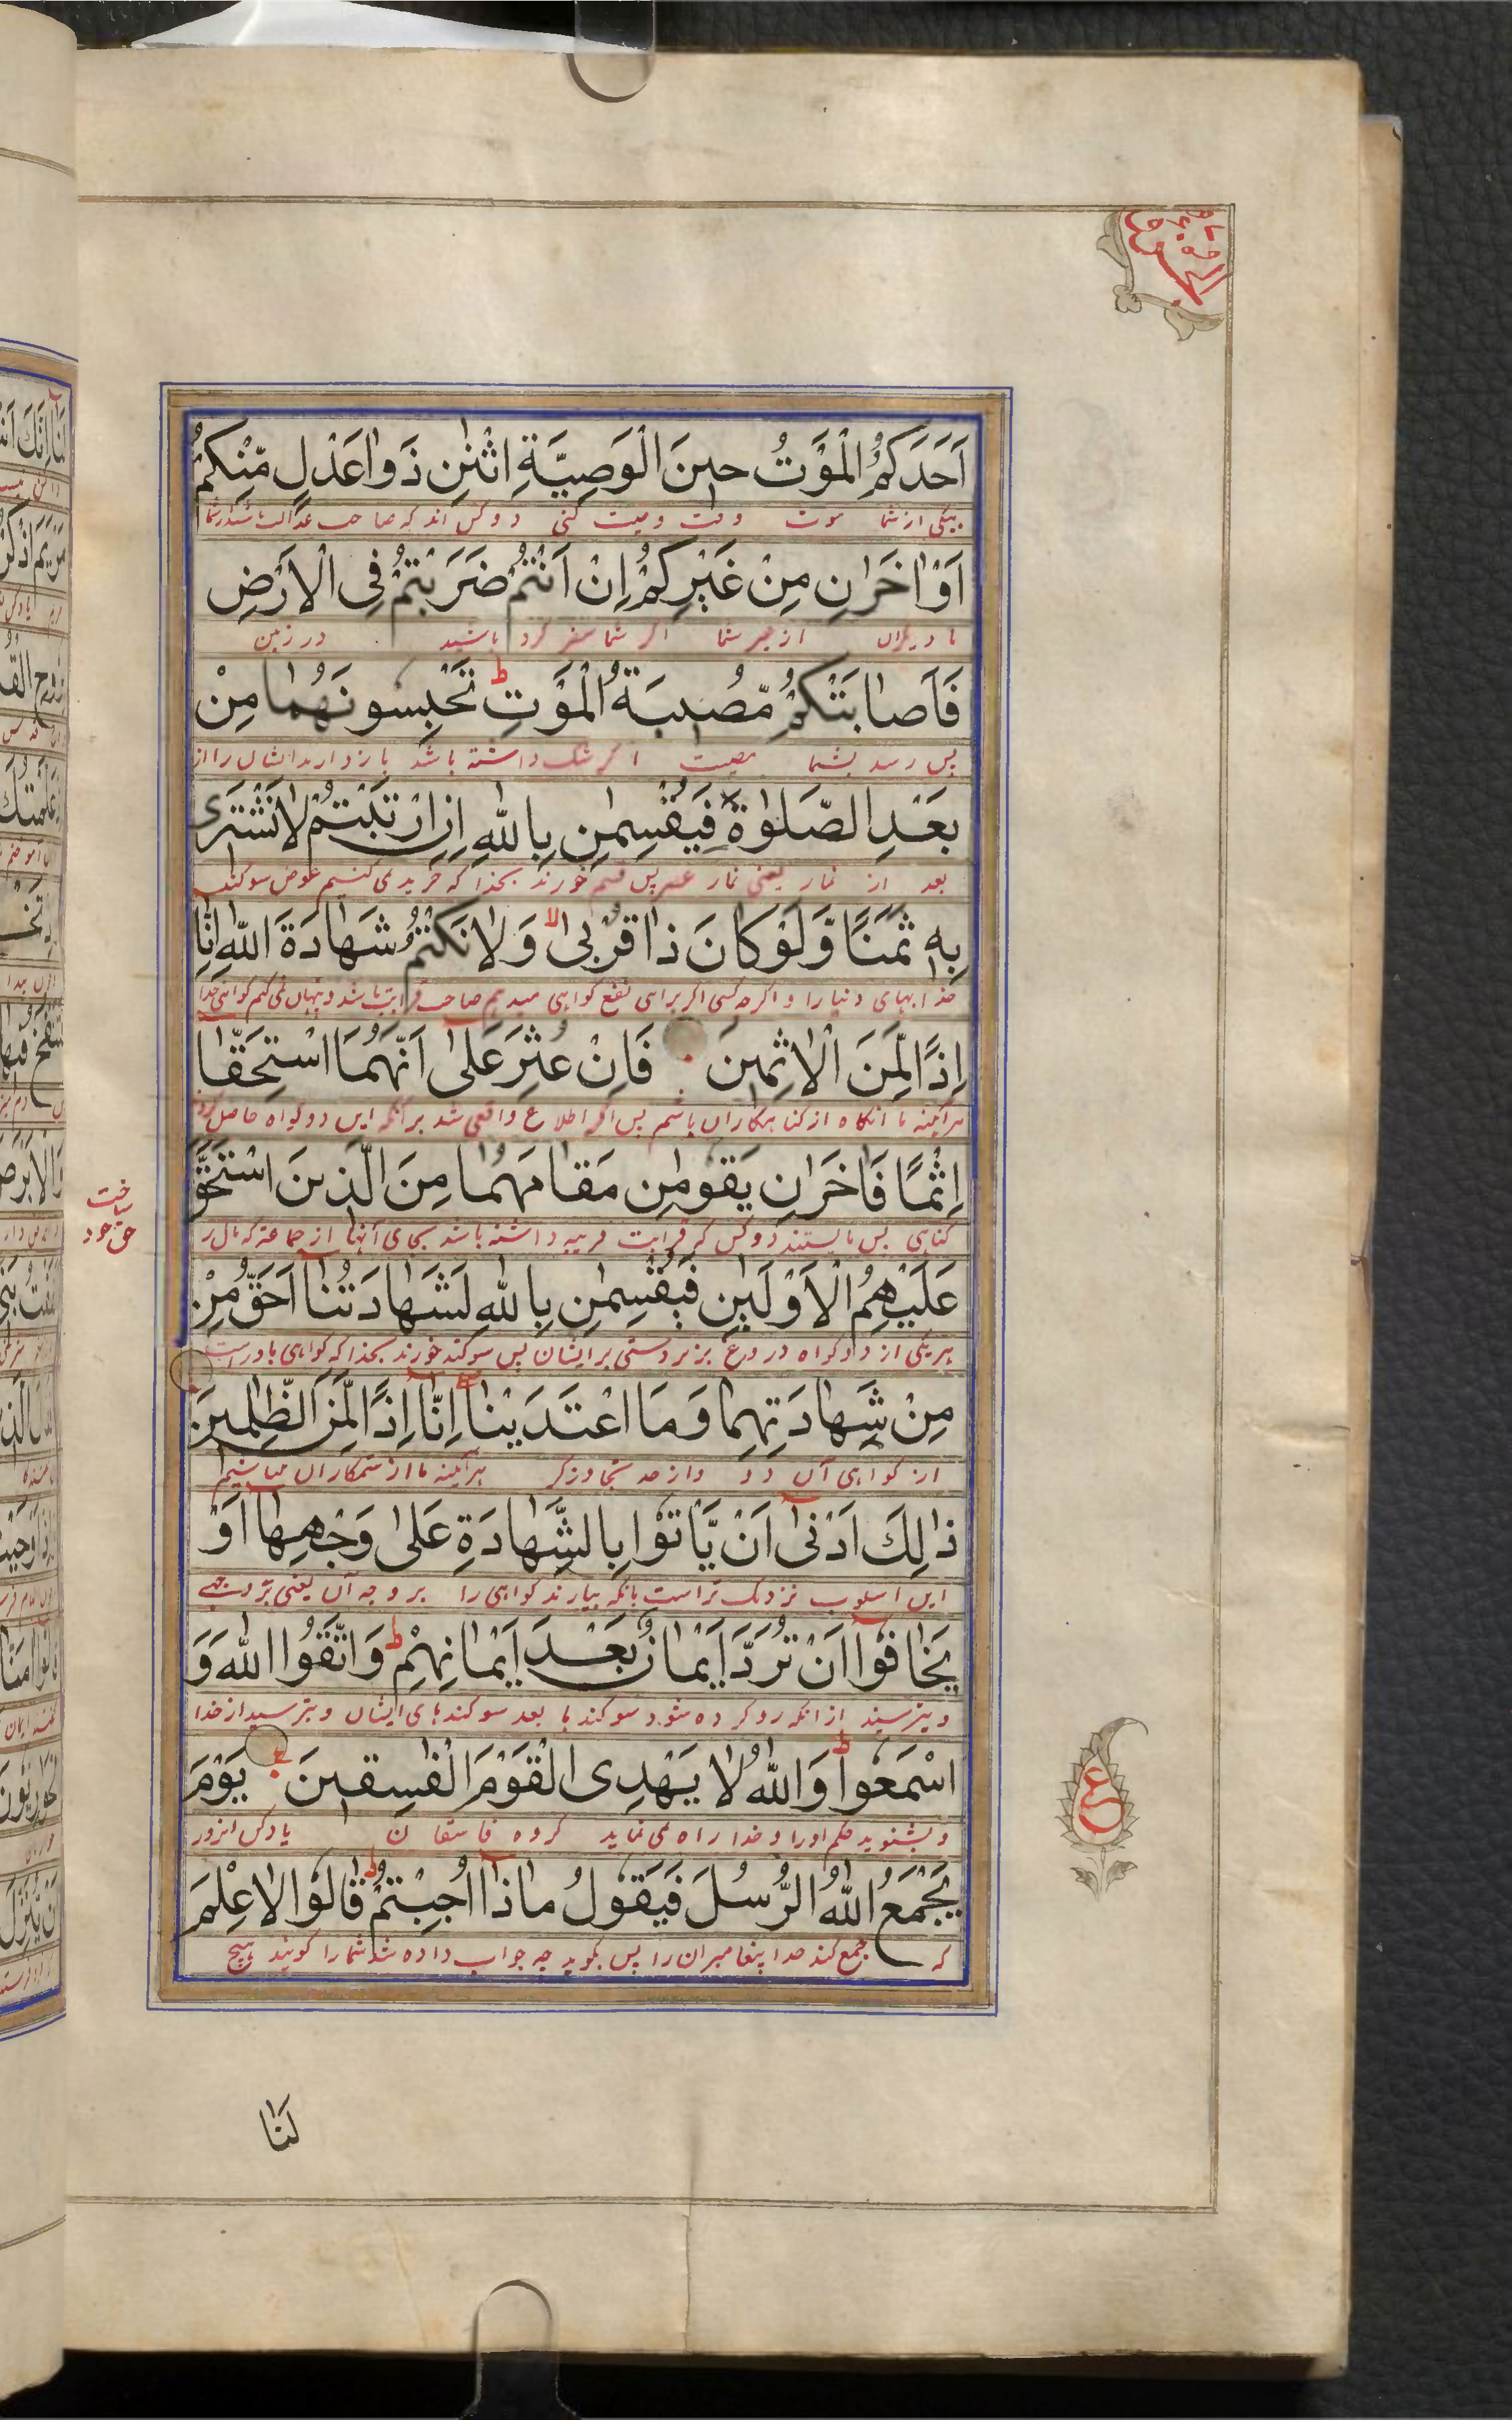 اَحَدَكُمُ الْمَوْتُ حِينَ الْوَصِيَّةِ اثْنٰنِ ذَوَا عَدْلٍ مِّنْكُمْ
بیکی از شما موت وقت وصیت کنی دو کس اند که صاحب عدالت باشند از شما
اَوْ اٰخَرٰنِ مِنْ غَيْرِكُمْ اِنْ اَنْتُمْ ضَرَبْتُمْ فِى الْاَرْضِ
یا دیگران از غیر شما اگر شما سفر کرده باشید در زمین
فَاَصَابَتْكُمْ مُّصِيبَةُ الْمَوْتِ ط تَحْبِسُونَهُمَا مِنْ
پس رسد بشما مصیبت اگر شک داشته باشد بازدارید ایشان را از
بَعْدِ الصَّلٰوةِ فَيُقْسِمٰنِ بِاللّٰهِ اِنِ ارْتَبْتُمْ لَا نَشْتَرِى
بعد از نماز یعنی نماز عصر پس قسم خورند بخدا که خریدی کنیم عوض سوکند
بِهٖ ثَمَنًا وَّلَوْ كَانَ ذَا قُرْبٰى لا وَلَا نَكْتُمُ شَهَادَةَ اللّٰهِ اِنَّا
خدا بهای دنیا را و اگرچه کسی اگر برای نفع کواهی میدهم صاحب قرابت باشد و پنهان نمی کنم کواهی خدا
اِذًا لَّمِنَ الْاٰثِمِينَ فَاِنْ عُثِرَ عَلٰى اَنَّهُمَا اسْتَحَقَّا
هرآئینه ما آنکاه از کناهکاران باشم پس اگر اطلاع واقع شد بر آنکه این دو کواه حاصل کردند
اِثْمًا فَاٰخَرٰنِ يَقُومٰنِ مَقَامَهُمَا مِنَ الَّذِينَ اسْتَحَقَّ
کناهی پس بایستند دو کس که قرابت قریبه داشته باشد بجای آنها از جماعتی که مال را
ساخت
حق خود
عَلَيْهِمُ الْاَوْلَيٰنِ فَيُقْسِمٰنِ بِاللّٰهِ لَشَهَادَتُنَا اَحَقُّ مِنْ
هر یکی از دو کواه دروغ بزبردستی بر ایشان پس سوکند خورند بخدا که کواهی ما درست
مِنْ شَهَادَتِهِمَا وَمَا اعْتَدَيْنَا اِنَّا اِذًا لَّمِنَ الظّٰلِمِينَ
از کواهی آن دو و از حد تجاوز نکر هرآئینه ما از ستمکاران میباشیم
ذٰلِكَ اَدْنٰى اَنْ يَّاْتُوا بِالشَّهَادَةِ عَلٰى وَجْهِهَا اَوْ
این اسلوب نزدیک تراست بانکه بیارند کواهی را بر وجه آن یعنی بر وجهی
يَخَافُوا اَنْ تُرَدَّ اَيْمَانٌ بَعْدَ اَيْمَانِهِمْ ط وَاتَّقُوا اللّٰهَ وَ
و بترسند از انکه رد کرده شود سوکندها بعد سوکندهای ایشان و بترسید از خدا
اسْمَعُوا ط وَاللّٰهُ لَا يَهْدِى الْقَوْمَ الْفٰسِقِينَ ع يَوْمَ
و بشنوید حکم او را و خدا راه نمی نماید کروه فاسقان یاد کن انروز
يَجْمَعُ اللّٰهُ الرُّسُلَ فَيَقُولُ مَاذَا اُجِبْتُمْ ط قَالُوا لَا عِلْمَ
که جمع کند خدا پیغامبران را پس بکوید چه جواب داده شد شما را کویند هیچ
ع
لَنَا